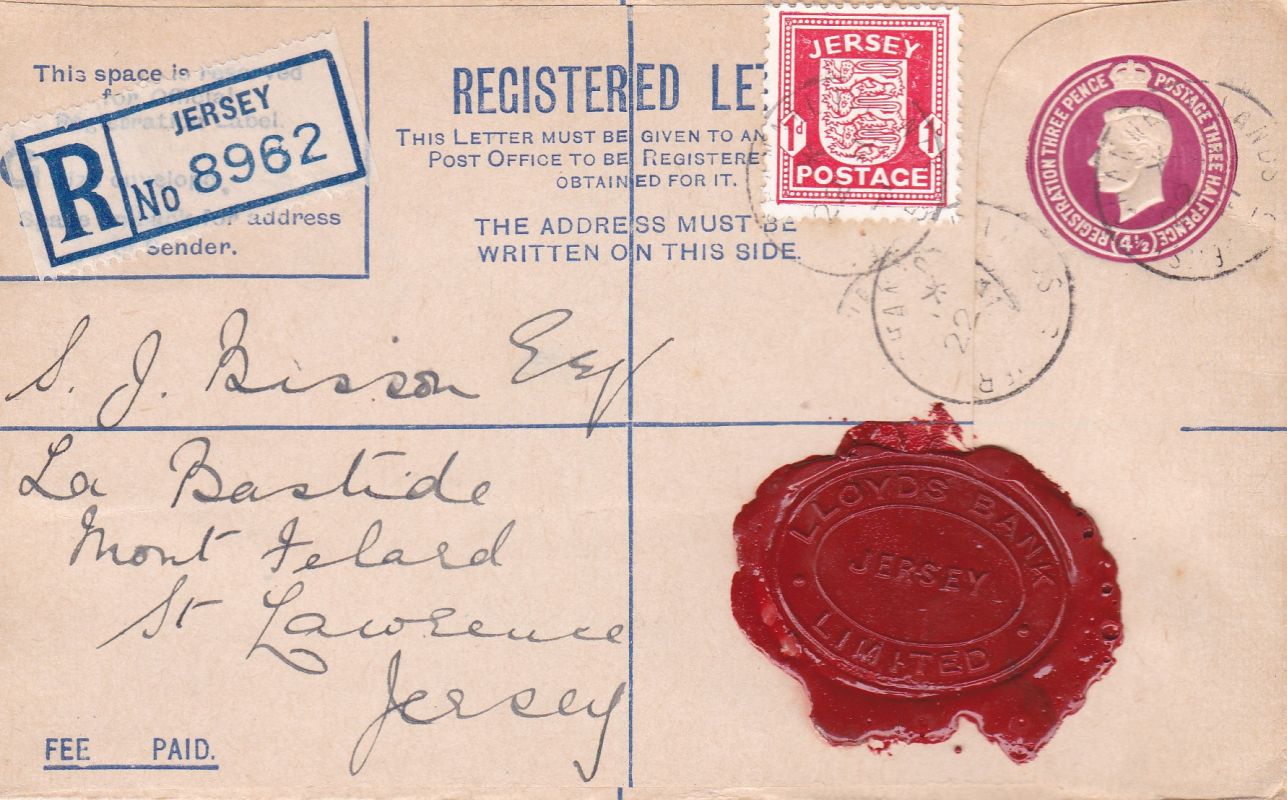 This space is reserved
for Official
Registration Label.
address
Sender.
R
JERSEY
No 8962
REGISTERED LE
THIS LETTER MUST BE GIVEN TO AN
POST OFFICE TO BE REGISTERE
OBTAINED FOR IT.
THE ADDRESS MUST BE
WRITTEN ON THIS SIDE.
JERSEY
1d 1d
POSTAGE
REGISTRATION THREE PENCE
POSTAGE THREE HALFPENCE
4½
22
S. J. Bisson Esq
La Bastide
Mont Felard
St Lawrence
Jersey
LLOYDS BANK
JERSEY
LIMITED
FEE PAID.